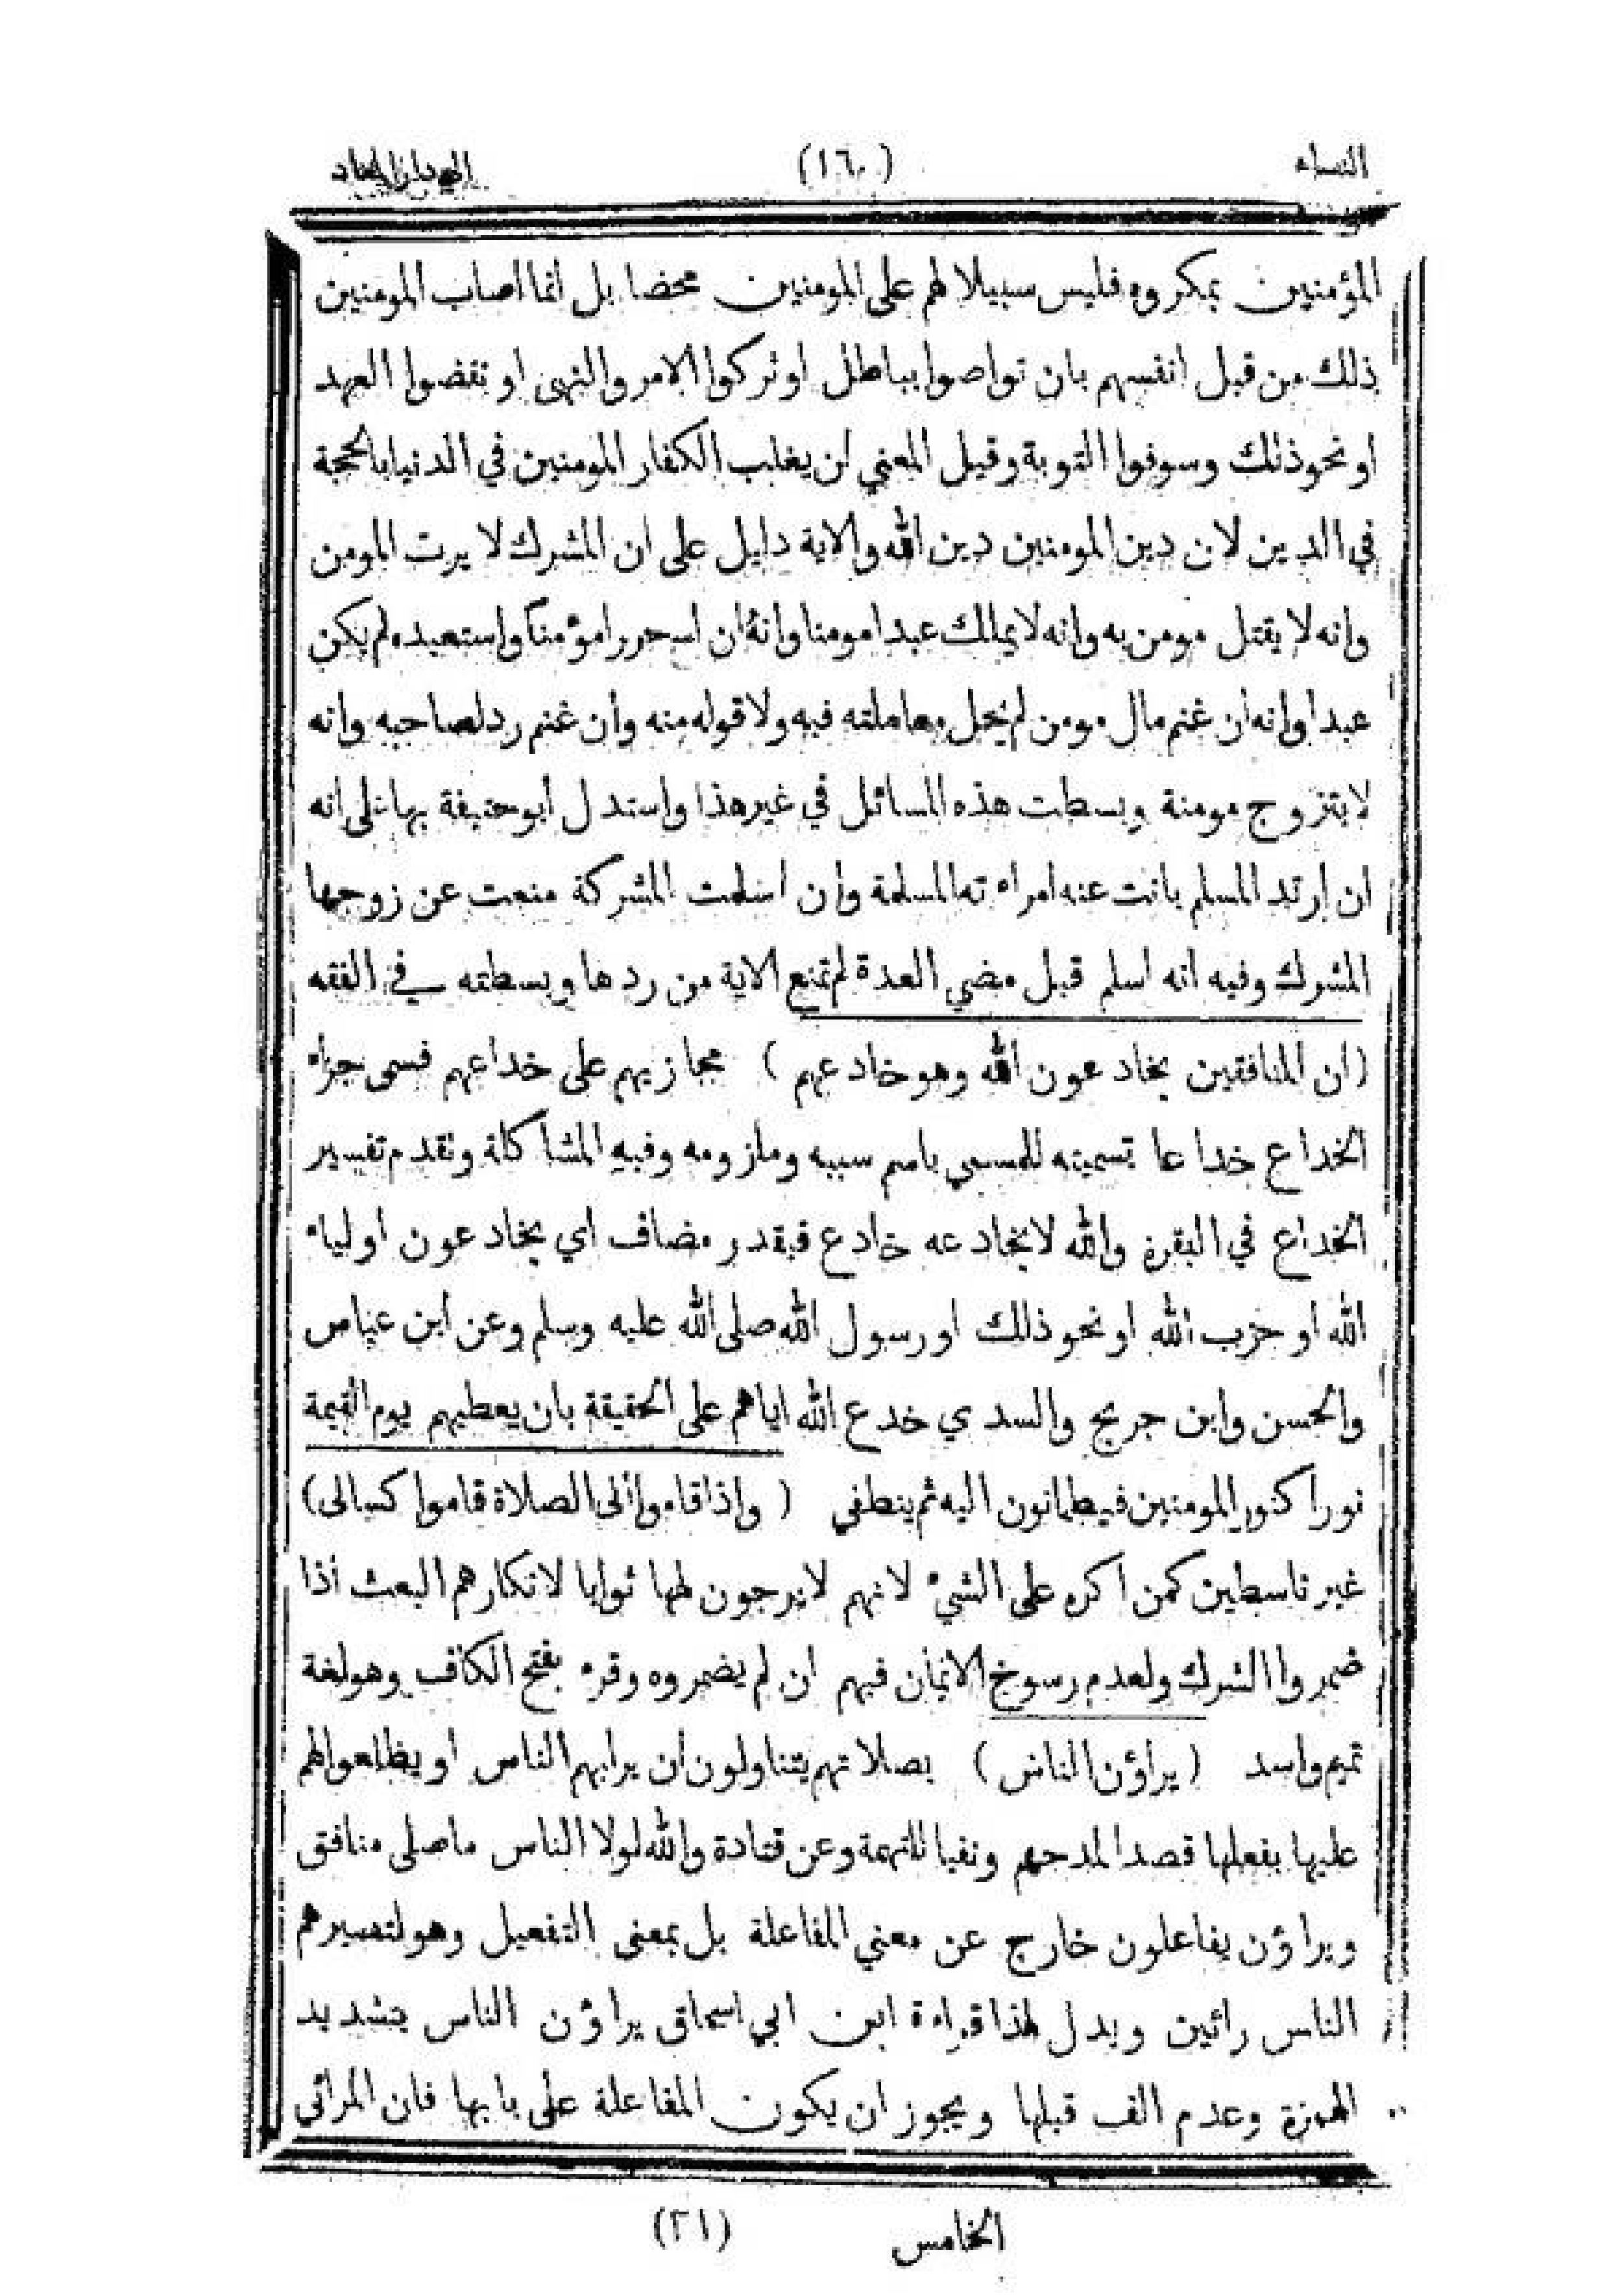 النساء (١٦٠) الى دار المعاد
المؤمنين بمكروه فليس سبيلا لهم على المومنين محضا بل انما اصاب المومنين
ذلك من قبل انفسهم بان تواصوا بباطل او تركوا الامر والنهى او نقضوا العهد
او نحو ذلك وسوفوا التوبة وقيل المعني لن يغلب الكفار المومنين في الدنيا بالحجة
في الدين لان دين المومنين دين الله والاية دليل على ان المشرك لا يرث المومن
وانه لا يقتل مومن به وانه لا يملك عبدا مومنا وانه ان اسر حرا مؤمنا واستعبده لم يكن
عبدا وانه ان غنم مال مومن لم يحل معاملته فيه ولا قوله منه وان غنم رد لصاحبه وانه
لا يتزوج مومنة وبسطت هذه المسائل في غير هذا واستدل أبو حنيفة بها على انه
ان ارتد المسلم بانت عنه امراءته المسلمة وان اسلمت المشركة منعت عن زوجها
المشرك وفيه انه اسلم قبل مضي العدة لم تمنع الاية من ردها وبسطته في الفقه
(ان المنافقين يخادعون الله وهو خادعهم) مجازيهم على خداعهم فسمى جزاء
الخداع خداعا تسميته للمسمى باسم سببه وملزومه وفيه المشاكلة وتقدم تفسير
الخداع في البقرة والله لا يخادعه خادع فيقدر مضاف اي يخادعون اولياء
الله او حزب الله او نحو ذلك او رسول الله صلى الله عليه وسلم وعن ابن عباس
والحسن وابن جريج والسدي خدع الله اياهم على الحقيقة بان يعطيهم يوم القيمة
نورا كنور المومنين فيطمانون اليه ثم ينطفي (واذا قاموا الى الصلاة قاموا كسالى)
غير ناسطين كمن اكره على الشيء لانهم لا يرجون لها ثوابا لانكارهم البعث اذا
ضمروا الشرك ولعدم رسوخ الايمان فيهم ان لم يضمروه وقرء بفتح الكاف وهو لغة
تميم واسد (يراؤن الناس) بصلاتهم يتناولون ان يرايهم الناس او يطلعوا لهم
عليها بفعلها قصدا لمدحهم ونفيا للتهمة وعن قتادة والله لولا الناس ما صلى منافق
ويراؤن يفاعلون خارج عن معني المفاعلة بل بمعنى التفعيل وهو لتصيرهم
الناس رائين ويدل لهذا قراءة ابن ابي اسحاق يراؤن الناس بتشديد
الهمزة وعدم الف قبلها ويجوز ان يكون المفاعلة على بابها فان المرائى
الخامس (٢١)